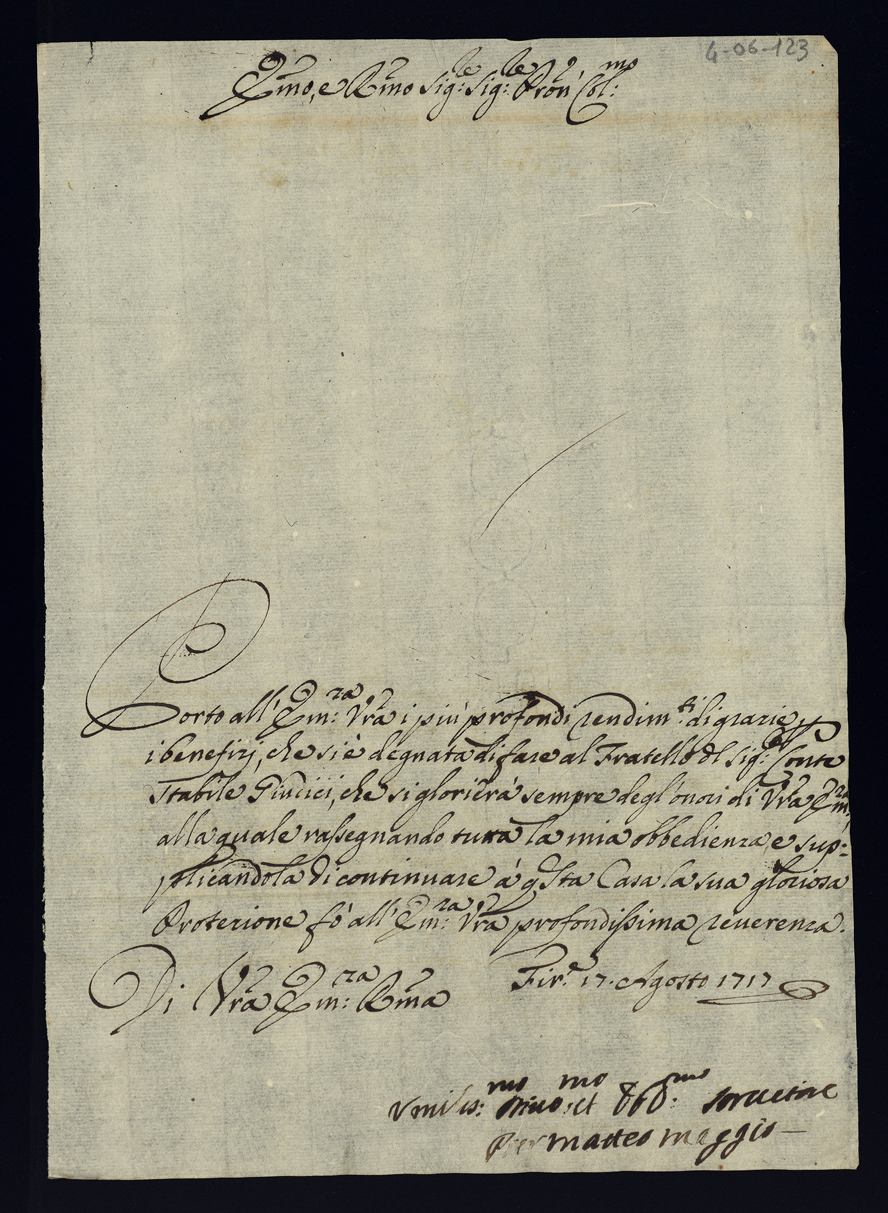 4-06-123
Em̃o, e Rm̃o Sig:re Sig:re Prõn Col:mo
Porto all' Em:za Vr̃a i più profondi rendim:ti di grazie p
i benefizj, che si è degnata di fare al Fratello dl Sig:r Conte
Stabile Giudici, che si glorierà sempre degl'onori di Vr̃a Em:za
alla quale rassegnando tutta la mia obbedienza, e sup:
plicandola di continuare á q̃sta Casa la sua gloriosa
Protezione fò all' Em:za Vr̃a profondissima reuerenza.
Di Vr̃a Em:za Rm̃a
Fir:e 17. Agosto 1717
Vmilis:mo Diuo:mo et Obb:mo Seruitore
Pier Matteo Maggio